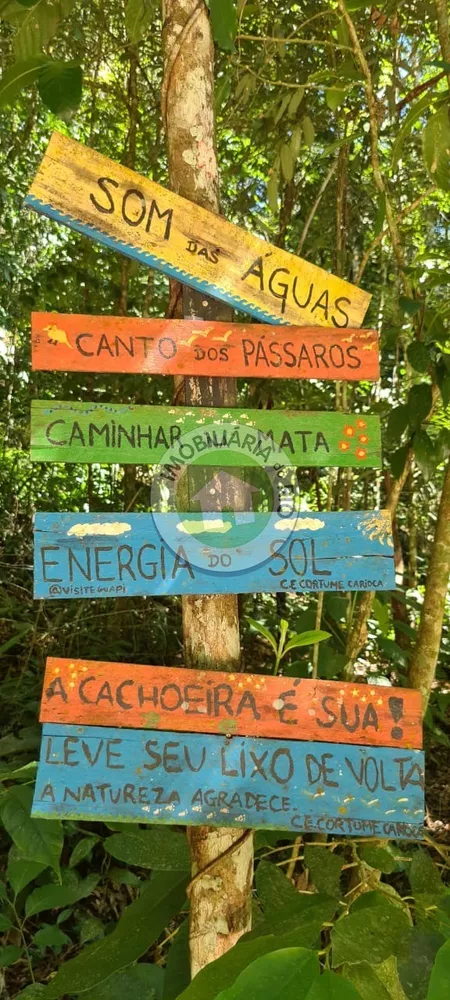 SOM DAS ÁGUAS
CANTO DOS PÁSSAROS
CAMINHAR NA MATA
IMOBILIÁRIA
ENERGIA DO SOL
@VISITEGUAPI
C.E.CORTUME CARIOCA
A CACHOEIRA É SUA!
LEVE SEU LIXO DE VOLTA
A NATUREZA AGRADECE.
C.E.CORTUME CARIOCA